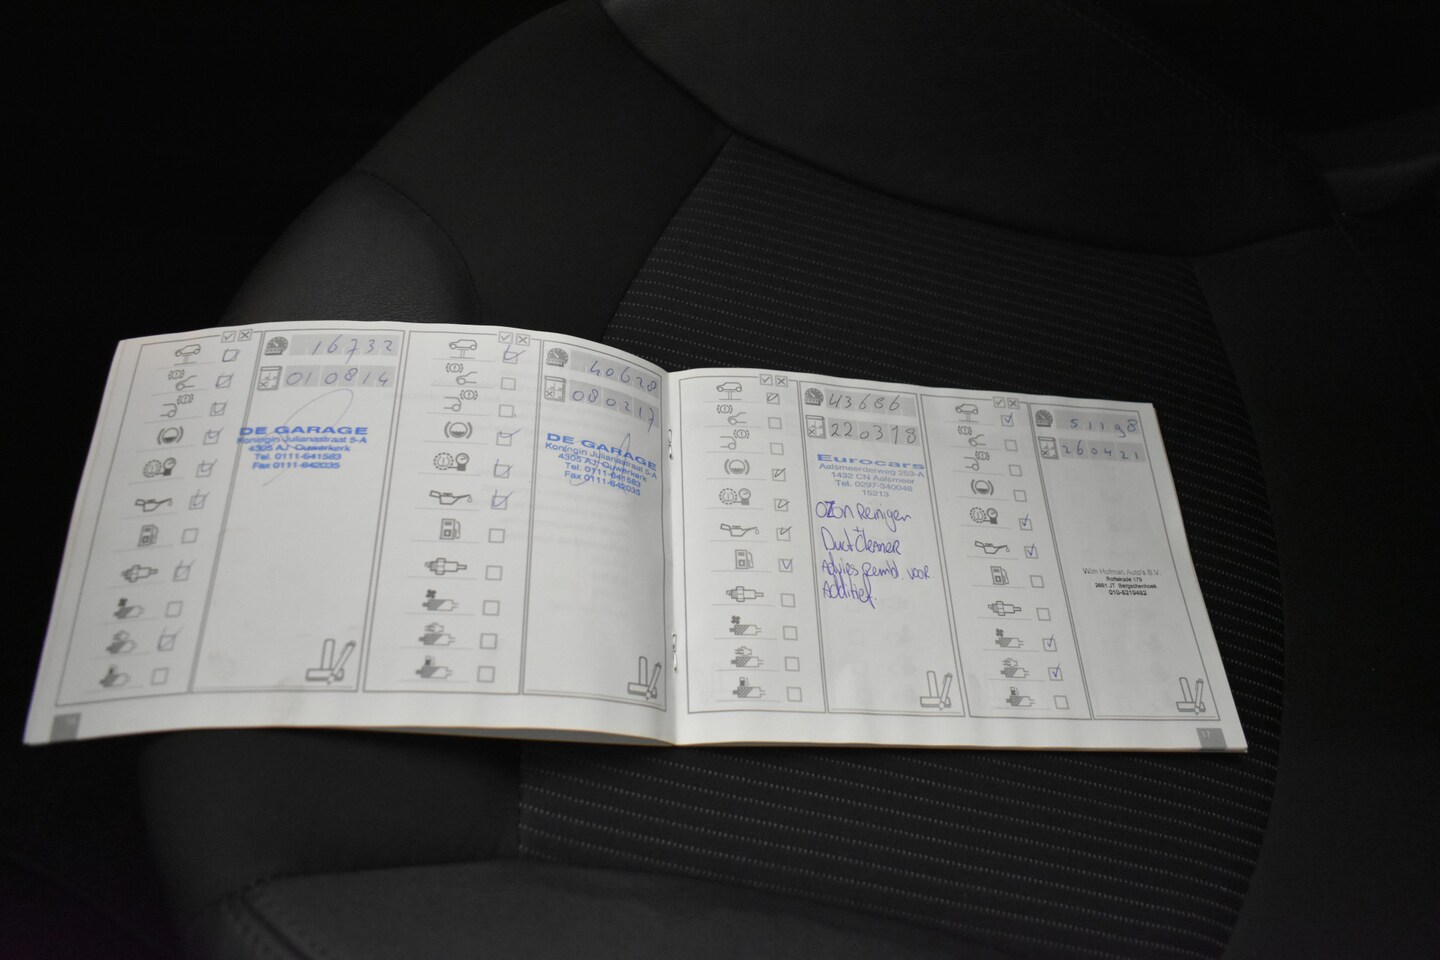 16732
010814
DE GARAGE
Koningin Julianastraat 5-A
4305 AJ Ouwerkerk
Tel. 0111-641583
Fax 0111-642035
40628
080217
DE GARAGE
Koningin Julianastraat 5-A
4305 AJ Ouwerkerk
Tel. 0111-641583
Fax 0111-642035
43686
220318
Eurocars
Aalsmeerderweg 253-A
1432 CN Aalsmeer
Tel. 0297-340046
15213
Ozon Reinigen
+
Duct Cleaner
Advies voor
Additief.
51198
260421
Wim Hofman Auto's B.V.
Rottekade 179
2661 JT Bergschenhoek
010-5219482
17